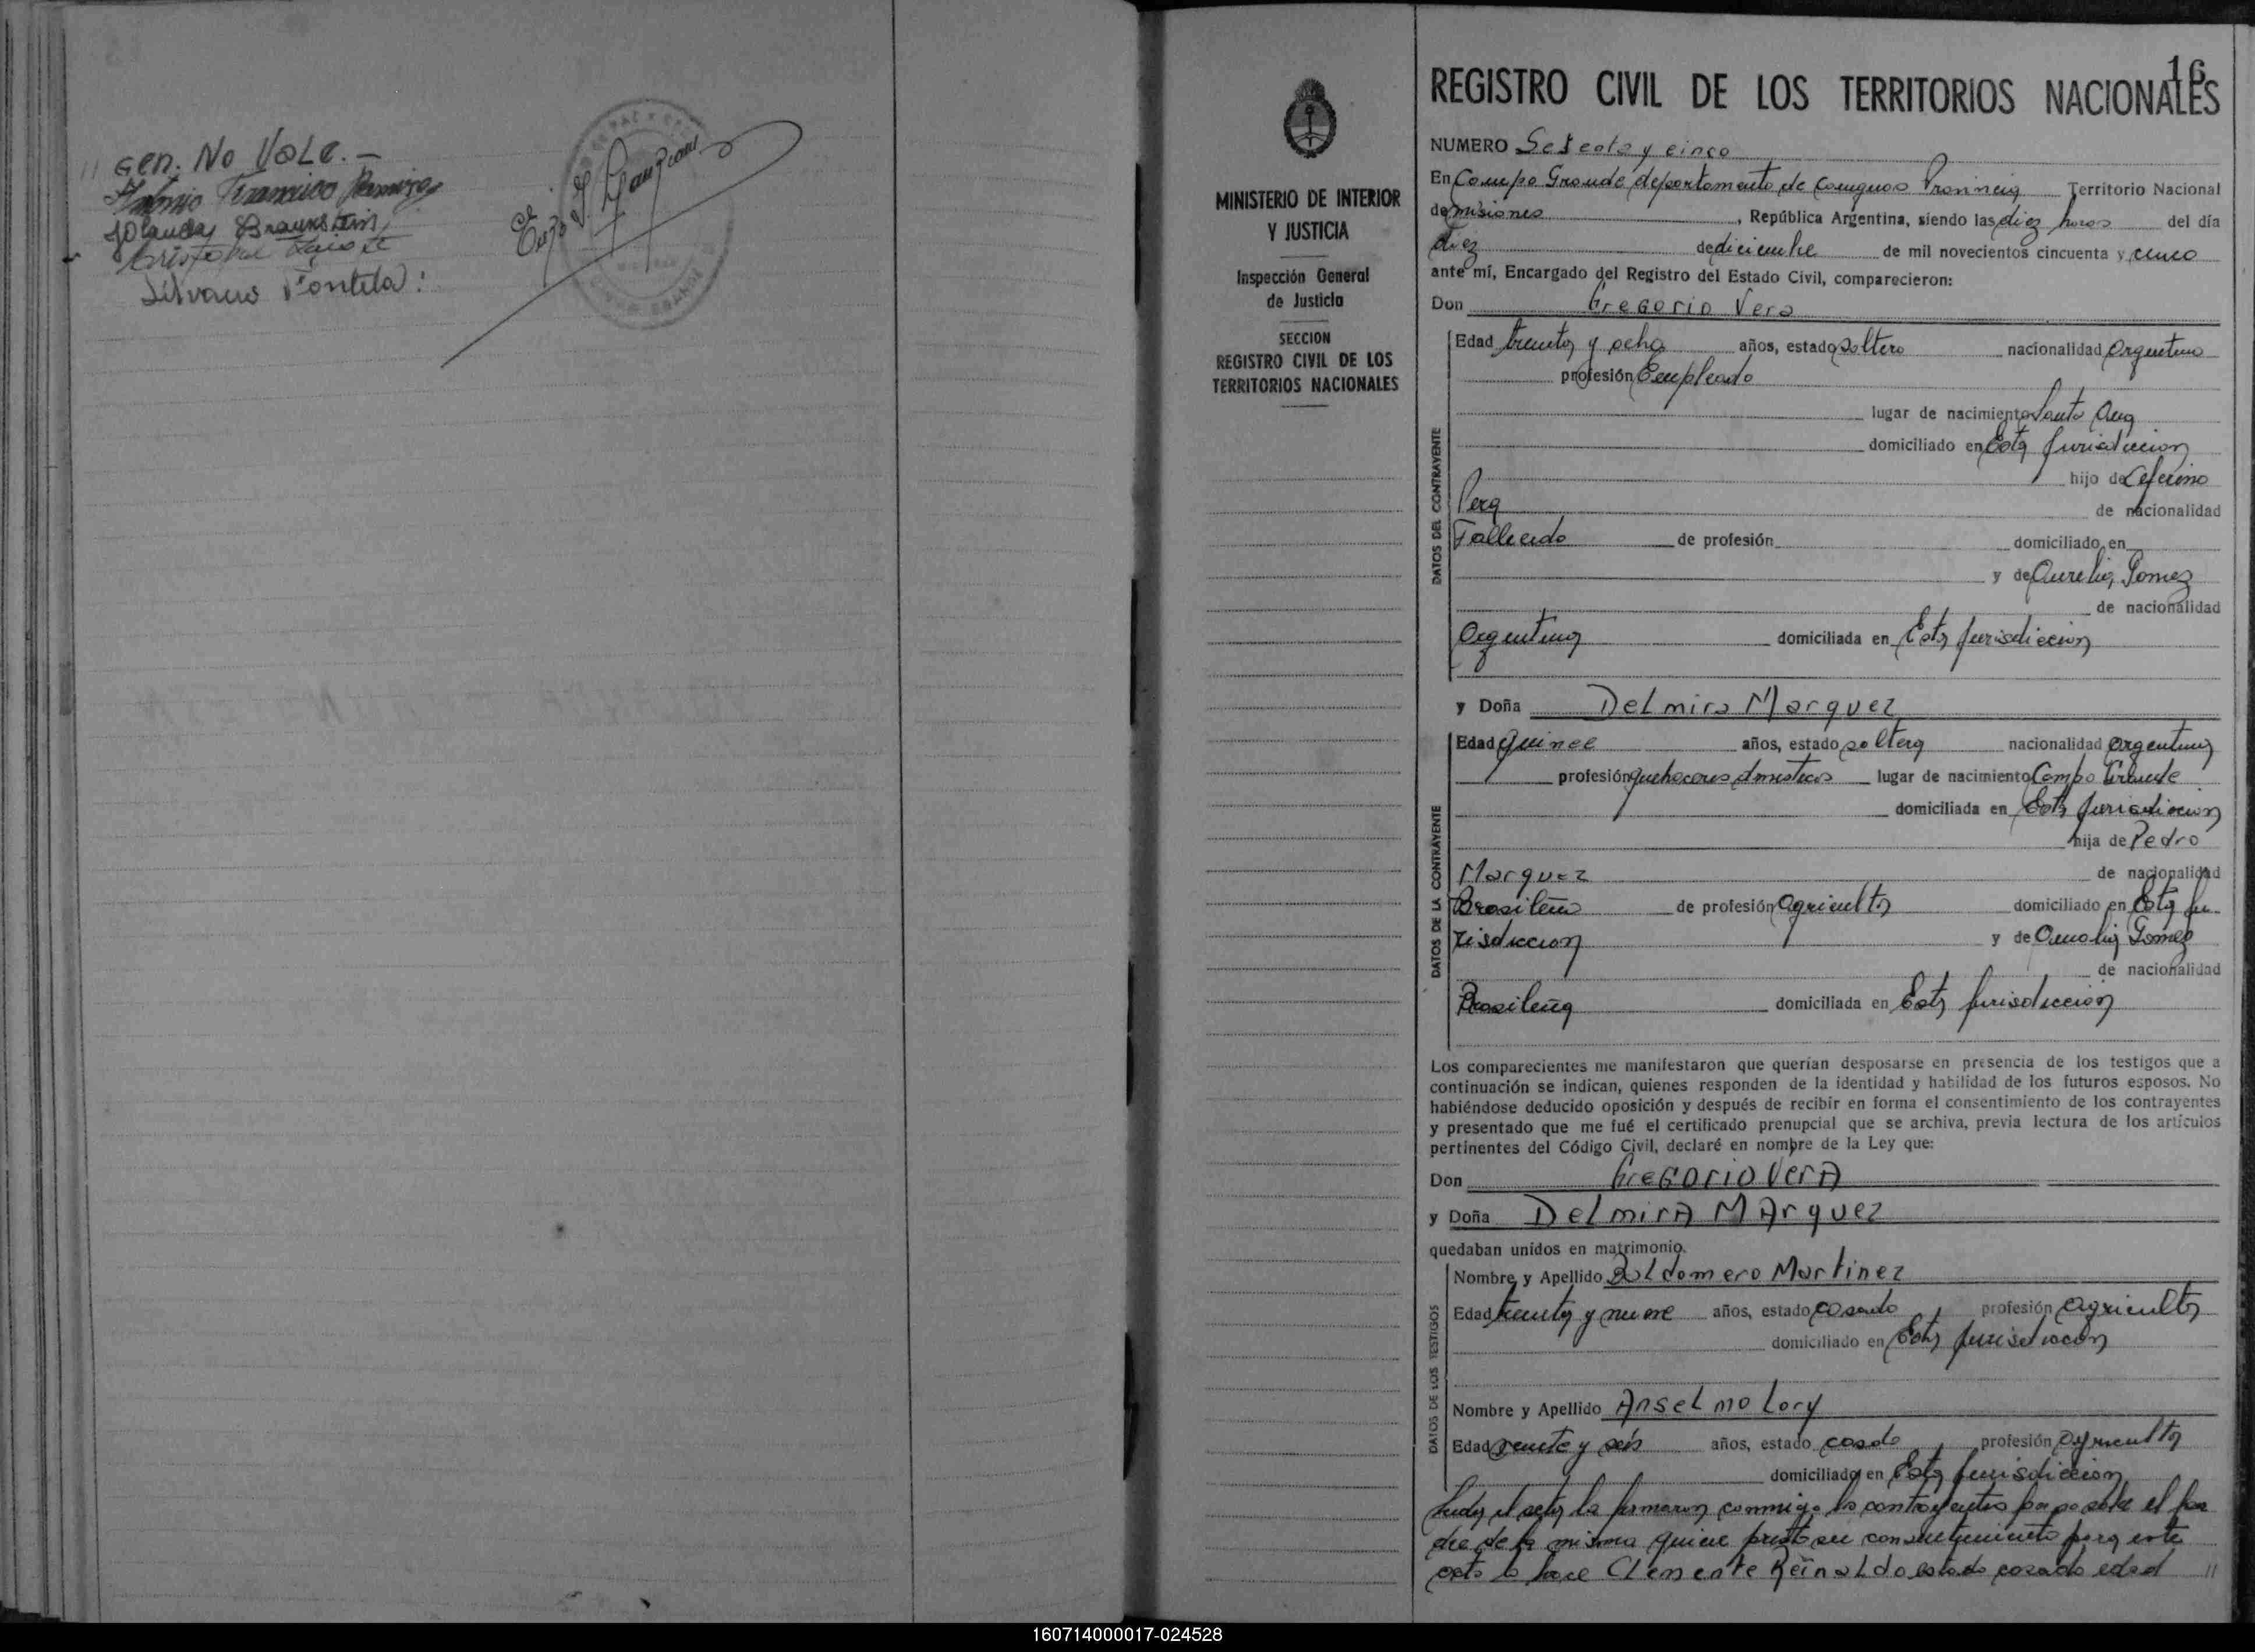 // Gen: No Vale.—
Antonio Francisco Ramirez
Yolanda Braunstein
Silvano Fontela:
16
REGISTRO CIVIL DE LOS TERRITORIOS NACIONALES
MINISTERIO DE INTERIOR
Y JUSTICIA
Inspección General
de Justicia
SECCION
REGISTRO CIVIL DE LOS
TERRITORIOS NACIONALES
NUMERO Setenta y cinco
En Campo Grande departamento de Cainguas Provincia Territorio Nacional
de Misiones, República Argentina, siendo las diez horas del día
diez de diciembre de mil novecientos cincuenta y cinco
ante mí, Encargado del Registro del Estado Civil, comparecieron:
Don Gregorio Vera
DATOS DEL CONTRAYENTE
Edad treinta y ocho años, estado soltero nacionalidad Argentino
profesión Empleado
lugar de nacimiento Santa Ana
domiciliado en Esta Jurisdiccion
hijo de Ceferino
Vera de nacionalidad
Fallecido de profesión domiciliado en
y de Aurelia Gomez
de nacionalidad
Argentina domiciliada en Esta Jurisdiccion
y Doña Delmira Marquez
DATOS DE LA CONTRAYENTE
Edad quince años, estado soltera nacionalidad argentina
profesión quehaceres domesticos lugar de nacimiento Campo Grande
domiciliada en Esta Jurisdiccion
hija de Pedro
Marquez de nacionalidad
Brasileño de profesión Agricultor domiciliado en Esta Ju
risdiccion y de Gomez
de nacionalidad
Brasileña domiciliada en Esta Jurisdiccion
Los comparecientes me manifestaron que querían desposarse en presencia de los testigos que a
continuación se indican, quienes responden de la identidad y habilidad de los futuros esposos. No
habiéndose deducido oposición y después de recibir en forma el consentimiento de los contrayentes
y presentado que me fué el certificado prenupcial que se archiva, previa lectura de los artículos
pertinentes del Código Civil, declaré en nombre de la Ley que:
Don Gregorio Vera
y Doña Delmira Marquez
quedaban unidos en matrimonio.
DATOS DE LOS TESTIGOS
Nombre y Apellido Baldomero Martinez
Edad treinta y nueve años, estado casado, profesión Agricultor
domiciliado en Esta Jurisdiccion
Nombre y Apellido Anselmo Lory
Edad veinte y seis años, estado casado, profesión Agricultor
domiciliado en Esta Jurisdiccion
el acta la firmaron conmigo los contrayentes el pa
dre de la misma quien presta su consentimiento para este
acto lo hace Clemente Reinaldo estado casado edad //
160714000017-024528